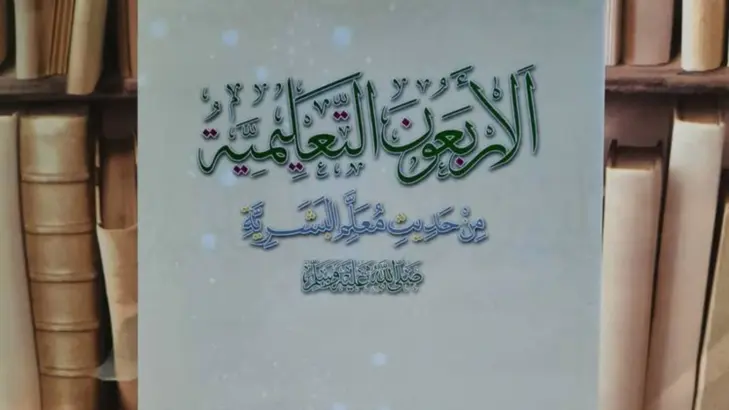 الأَرْبَعُونَ التَّعْلِيمِيَّةُ
مِنْ حَدِيثِ مُعَلِّمِ الْبَشَرِيَّةِ
صَلَّى اللَّهُ عَلَيْهِ وَسَلَّمَ